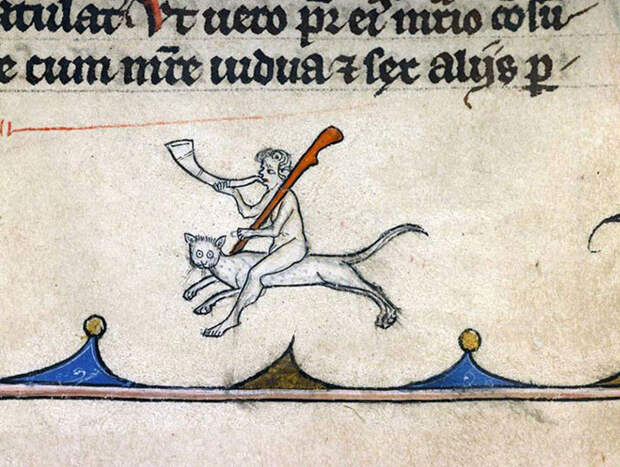 atulat Vt uero pr̃ ei mr̃io cōsu
e cum mr̃e uidua ⁊ sex alijs p